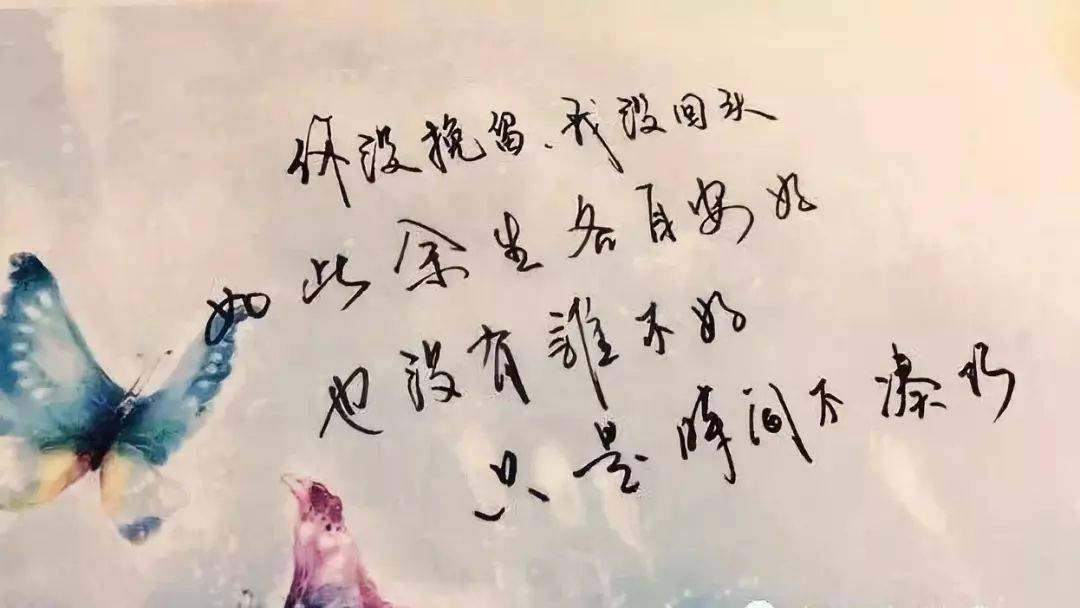 你没挽留、我没回头
如此余生各自安好
也没有誰不好
只是時间不湊巧